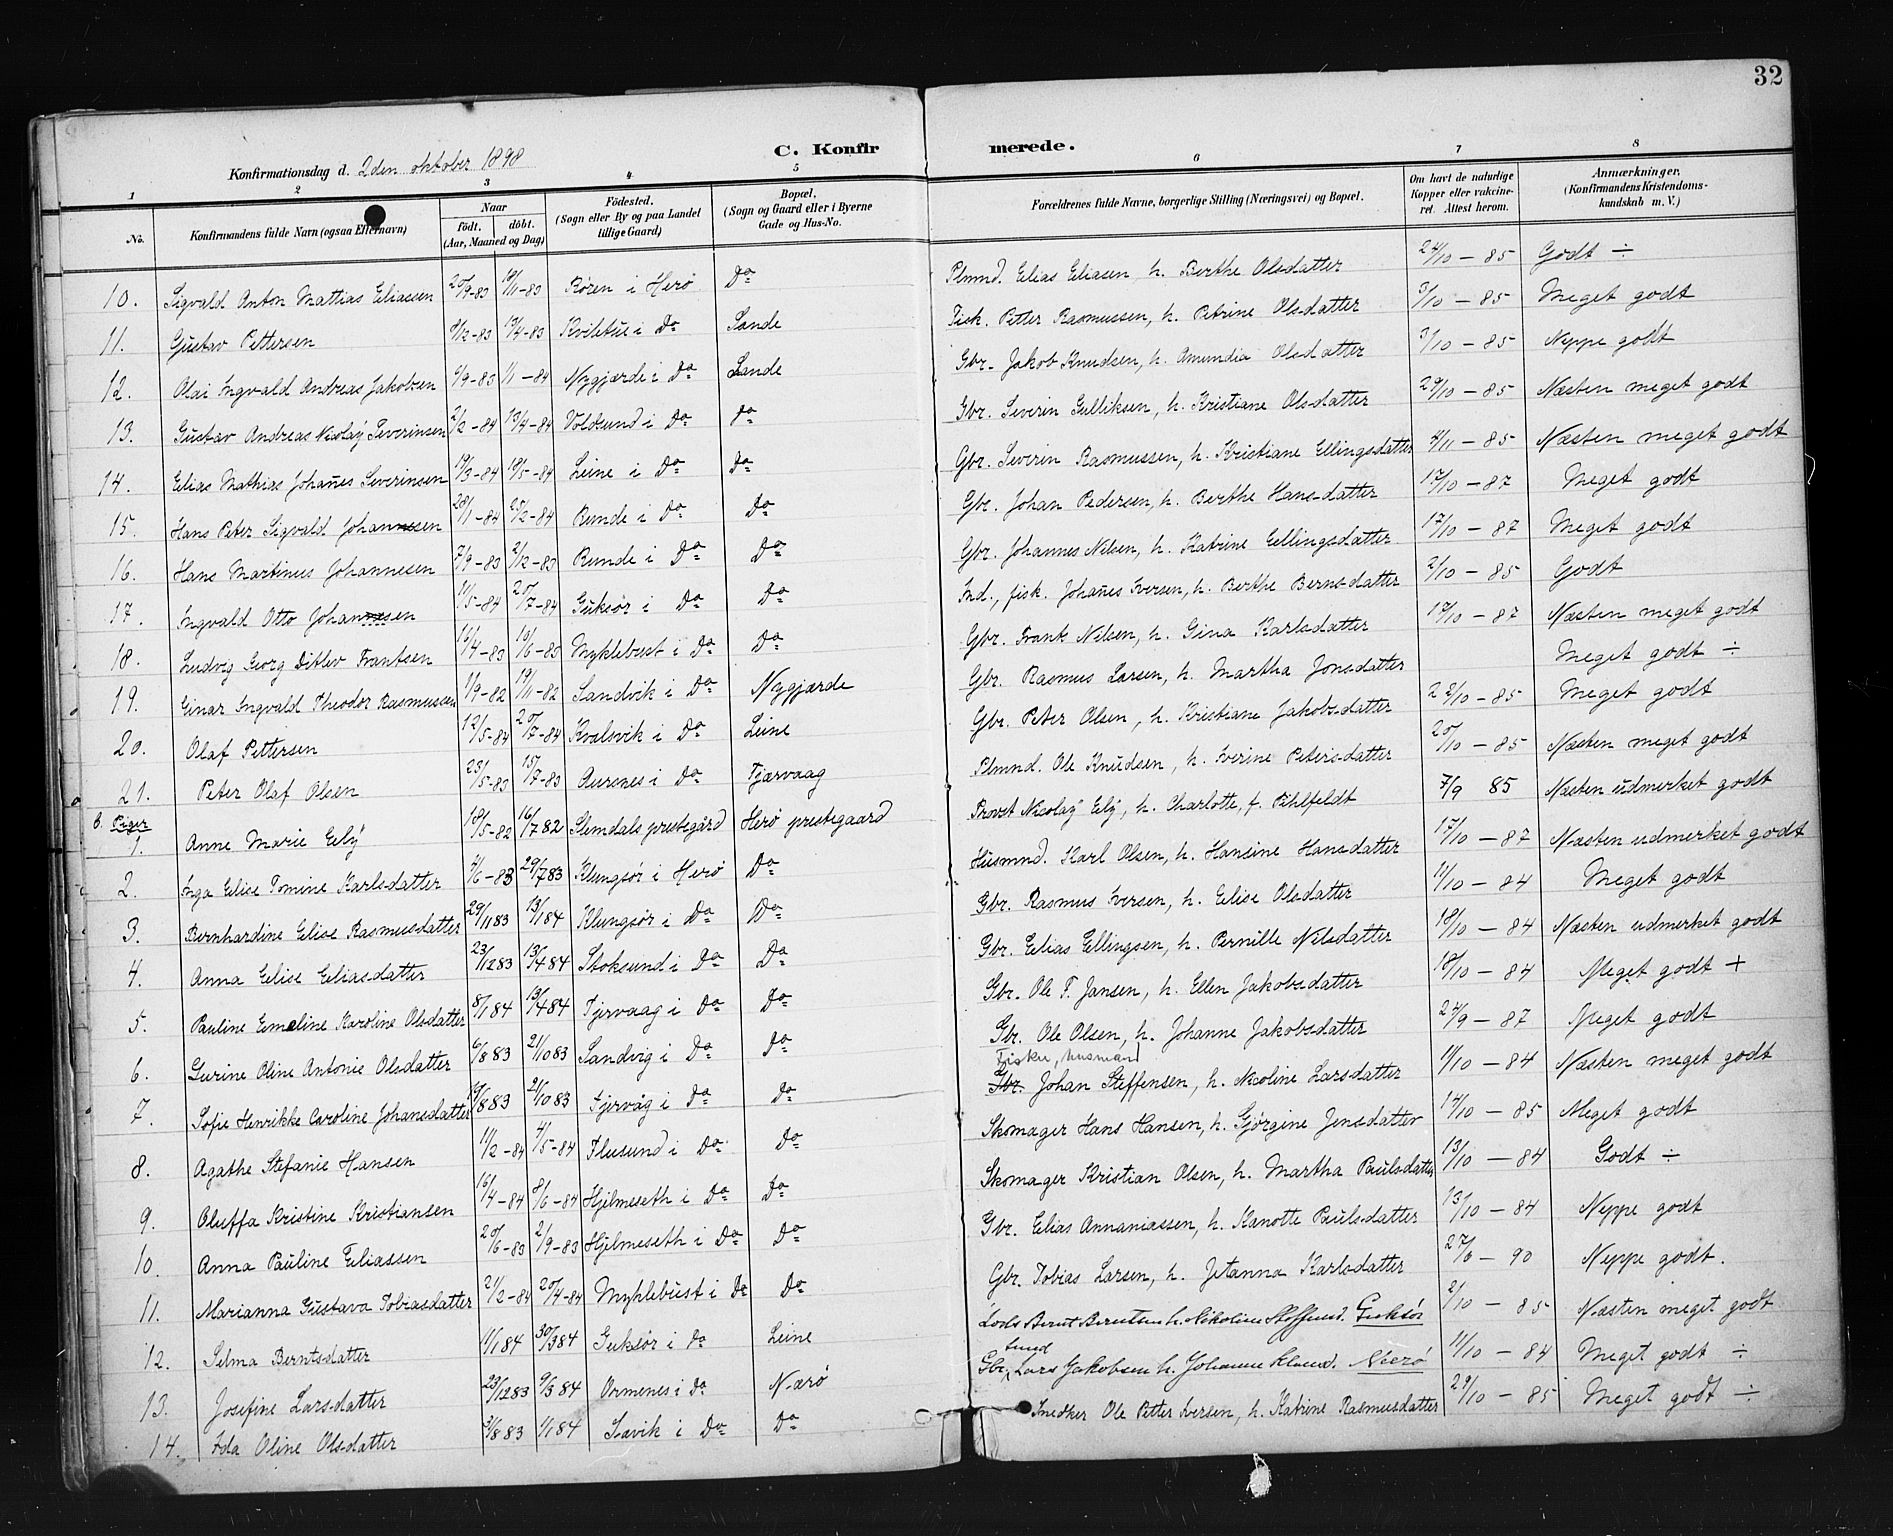 32
C. Konfirmerede.
Konfirmationsdag d. 2den oktober 1898
1 2 3 4 5 6 7 8
No. Konfirmandens fulde Navn (ogsaa Efternavn) Naar født. døbt. (Aar, Maaned og Dag) Fødested. (Sogn eller By og paa Landet tillige Gaard) Bopæl. (Sogn og Gaard eller i Byerne Gade og Hus-No. Forældrenes fulde Navne, borgerlige Stilling (Næringsvei) og Bopæl. Om havt de naturlige Kopper eller vakcineret. Attest herom. Anmærkninger. (Konfirmandens Kristendomskundskab m. V.)
10. Sigvald Anton Mathias Eliassen 20/9-83 18/11-83 Røren i Herø Do Plmnd. Elias Eliasen, h. Berthe Olsdatter 24/10-85 Godt ÷
11. Gustav Pettersen 8/12-83 Kviletue i Do Sande Fisk. Petter Rasmussen, h. Petrine Olsdatter 3/10-85 Meget godt
12. Olai Ingvald Andreas Jakobsen 6/9-83 1/1-84 Nygjærde i Do Sande Gbr. Jakob Knudsen, h. Amundia Olsdatter 3/10-85 Neppe godt
13. Gustav Andreas Nicolay Severinsen 2/2-84 13/4-84 Voldsund i Do Do Gbr. Severin Gulliksen, h. Kristiane Olsdatter 29/10-85 Næsten meget godt
14. Elias Mathias Johanes Severinsen 19/3-84 18/5-84 Leine i Do Do Gbr. Severin Rasmussen, h. Kristiane Ellingsdatter 4/11-85 Næsten meget godt
15. Hans Peter Sigvald Johansen 28/1-84 25/2-84 Runde i Do Do Gbr. Johan Pedersen, h. Berthe Hansdatter 17/10-87 Meget godt
16. Hans Martinus Johannesen 7/9-83 2/12-83 Runde i Do Do Gbr. Johannes Nilsen, h. Katrine Ellingsdatter 17/10-87 Meget godt
17. Ingvald Otto Johannesen 11/5-84 20/7-84 Guksør i Do Do Ind., fisk. Johanes Iversen, h. Berthe Berntsdatter 2/10-85 Godt
18. Ludvig Georg Ditlev Frantsen 16/4-83 10/6-83 Myklebust i Do Do Gbr. Frank Nilsen, h. Gina Karlsdatter 17/10-87 Næsten meget godt
19. Einar Ingvald Theodor Rasmussen 1/9-82 19/11-82 Sandvik i Do Nygjærde Gbr. Rasmus Larsen, h. Martha Jonsdatter Meget godt ÷
20. Olaf Pettersen 12/5-84 20/7-84 Kvalsvik i Do Leine Gbr. Peter Olsen, h. Kristiane Jakobsdatter 22/10-85 Meget godt
21. Peter Olaf Olsen 23/5-83 15/7-83 Aurones i Do Tjørvaag Plmnd. Ole Knudsen, h. Iverine Petersdatter 20/10-85 Næsten meget godt
b. Piger
1. Anne Marie Eeby 18/5-82 16/7 82 Slemdals prestegård Herø prestegaard Provst Nicolay Eeby, h. Charlotte, f. Pihlfeldt 7/9 85 Næsten udmerket godt
2. Inga Elise Tomine Karlsdatter 4/6-83 29/7 83 Klungsør i Herø Do Husmnd. Karl Olsen, h. Hansine Hansdatter 17/10-87 Næsten udmerket godt
3. Bernhardine Elise Rasmusdatter 29/11 83 13/1 84 Klungsør i Do Do Gbr. Rasmus Iversen, h. Elise Olsdatter 11/10-84 Meget godt
4. Anna Elise Eliasdatter 23/12 83 13/4 84 Stoksund i Do Do Gbr. Elias Ellingsen, h. Pernille Nilsdatter 18/10-84 Næsten udmerket godt
5. Pauline Emeline Karoline Olsdatter 8/1 84 13/4 84 Tjervaag i Do Do Gbr. Ole T. Jansen, h. Ellen Jakobsdatter 18/10-84 Meget godt +
6. Gurine Oline Antonie Olsdatter 6/8 83 21/10 83 Sandvig i Do Do Gbr. Ole Olsen, h. Johanne Jakobsdatter 24/9-87 Meget godt
Fisker, husmand
7. Sofie Henrikke Caroline Johansdatter 19/8 83 21/10 83 Tjervåg i Do Do Gbr. Johan Steffensen, h. Nicoline Larsdatter 11/10-84 Næsten meget godt
8. Agathe Stefanie Hansen 11/2-84 4/5-84 Flusund i Do Do Skomager Hans Hansen, h. Gjørgine Jensdatter 14/10-85 Meget godt
9. Oluffa Kristine Kristiansen 16/4-84 8/6-84 Hjelmeseth i Do Do Skomager Kristian Olsen, h. Martha Paulsdatter 13/10-84 Godt ÷
10. Anna Pauline Eliassen 20/6-83 2/9-83 Hjelmeseth i Do Do Gbr. Elias Annaniassen, h. Kanotte Paulsdatter 13/10-84 Neppe godt
11. Marianna Gustava Tobiasdatter 21/2-84 20/4-84 Myklebust i Do Do Gbr. Tobias Larsen, h. Jetanna Karlsdatter 27/6-90 Neppe godt.
12. Selma Berntsdatter 1/1 84 30/3 84 Guksør i Do Leine Lods Bernt Berntsen h. Nikoline Steffensd. Guksør 2/10-85 Næsten meget godt
13. Josefine Larsdatter 23/12 83 9/3 84 Ormenes i Do Nærø Gbr. Lars Jakobsen h. Johanne Nærø 11/10-84 Meget godt ÷
14. Ida Oline Olsdatter 31/8 83 1/1 84 Sævik i Do Do Snedker Ole Petter Iversen, h. Katrine Rasmusdatter 29/10-85 Meget godt ÷